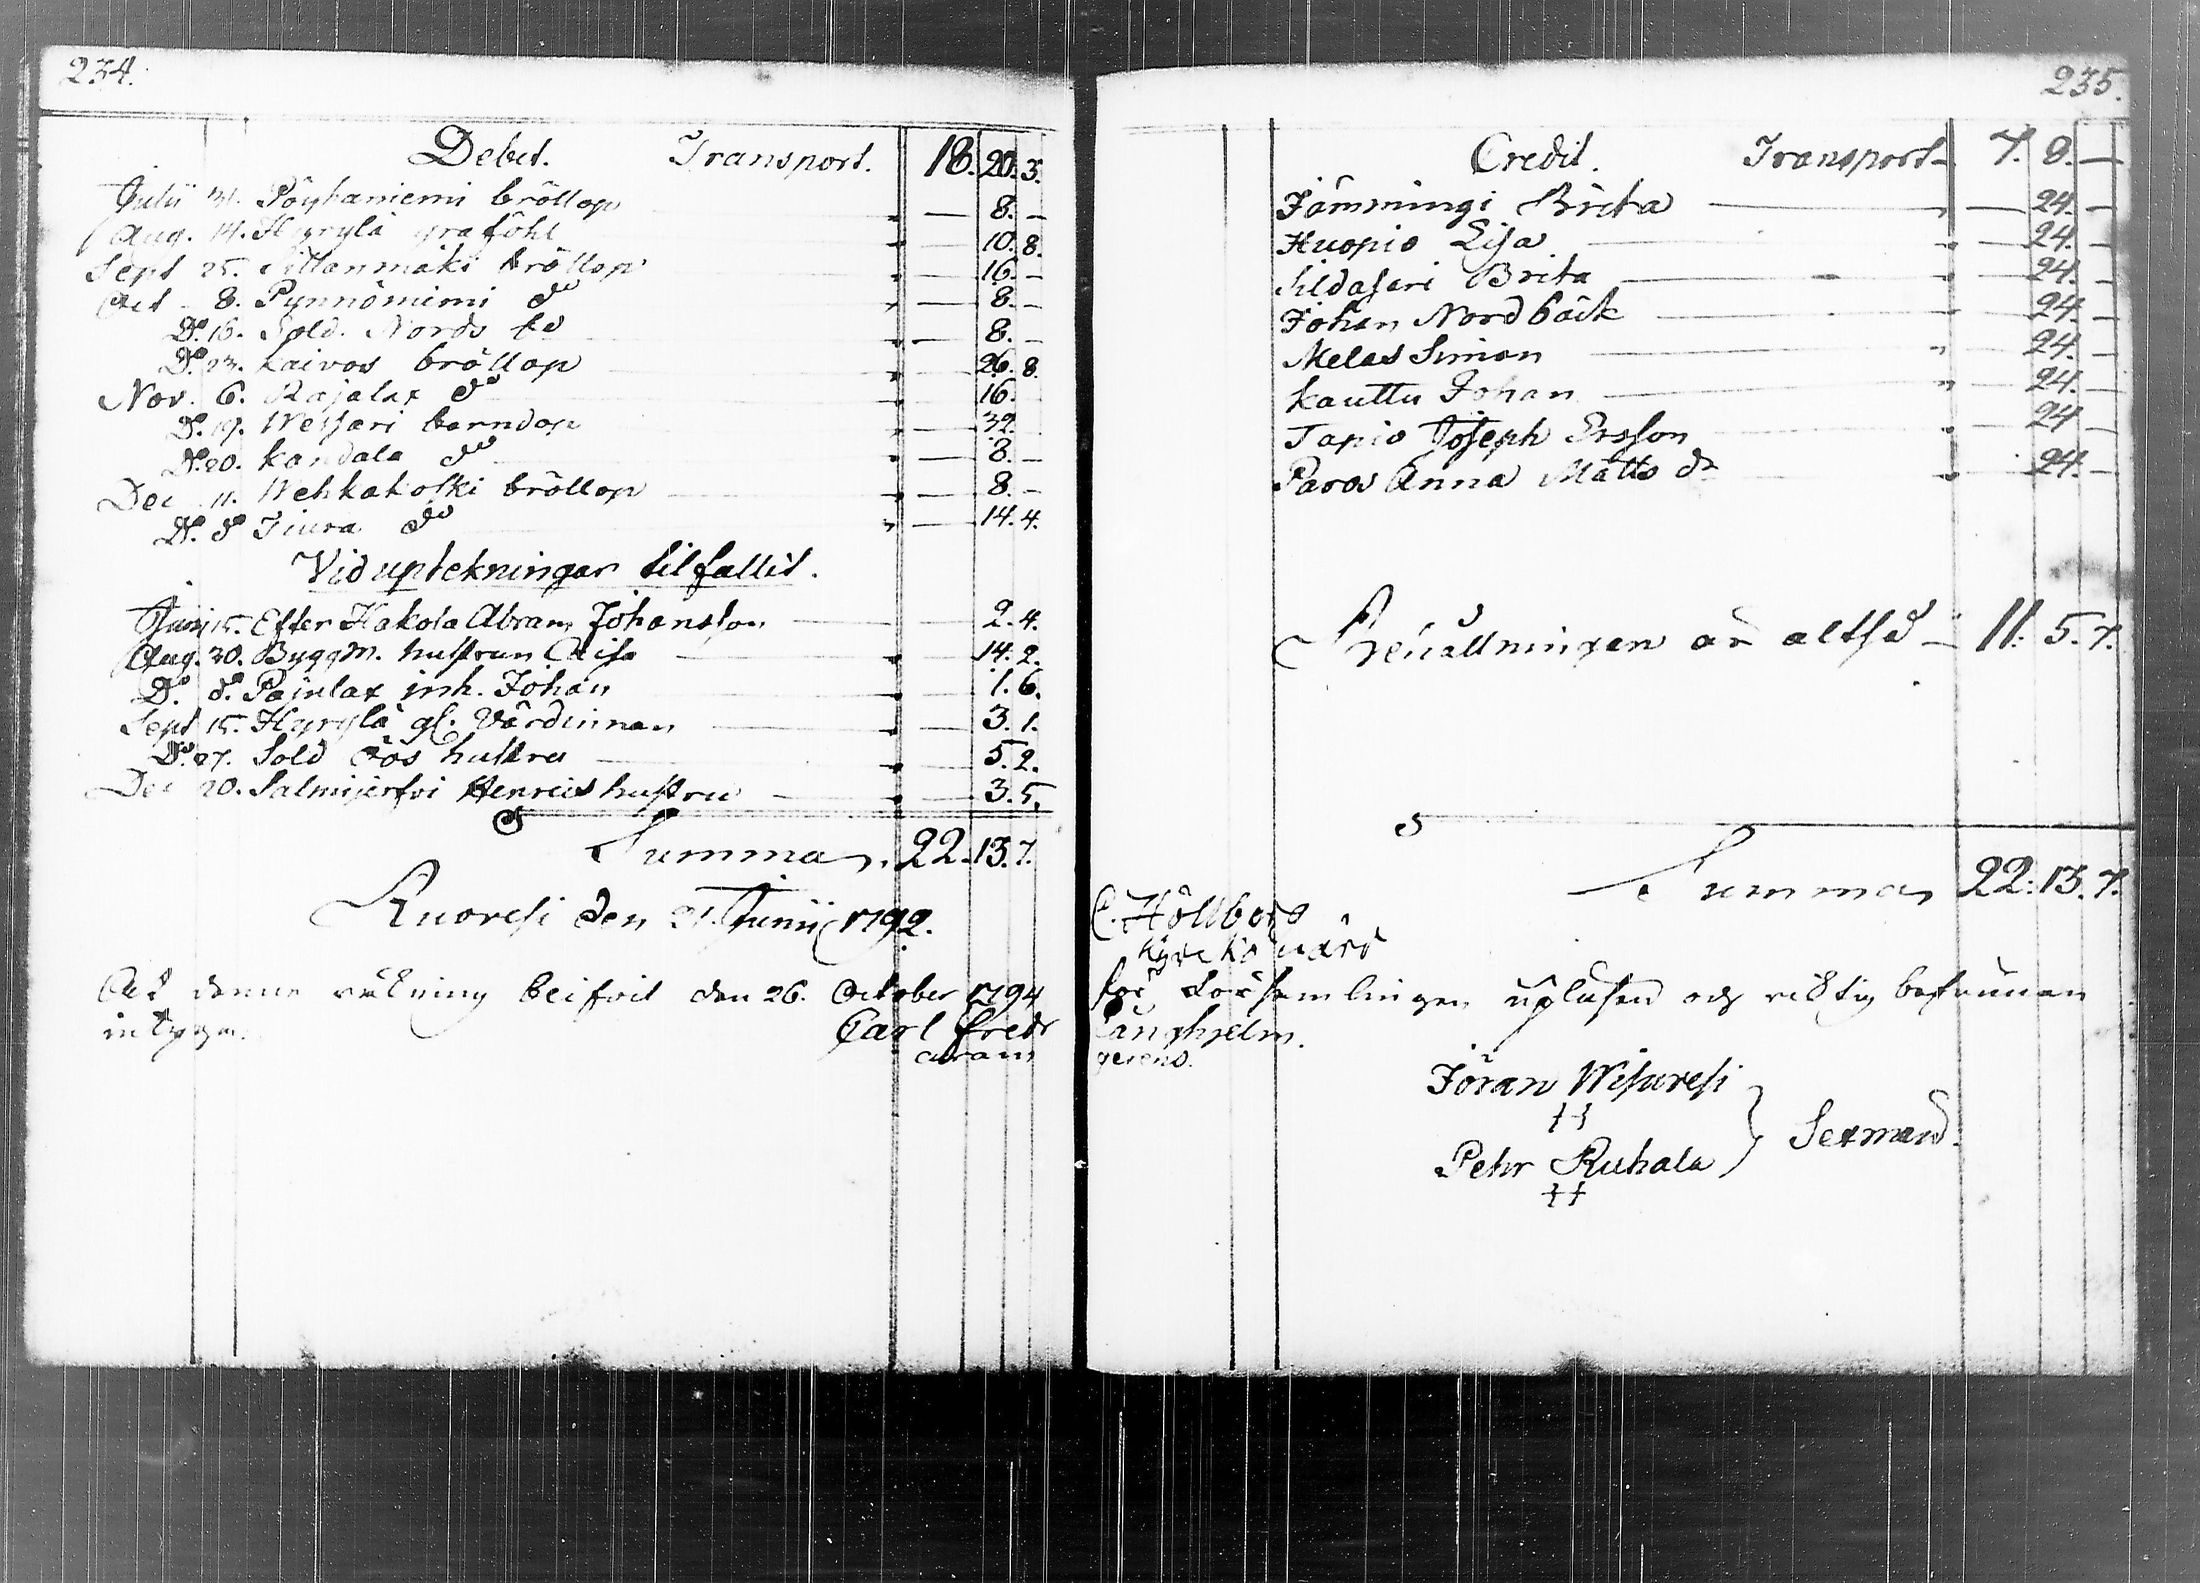 234.
Debet. Transport. 18. 20. 3.
Julii 31. Pöyhäniemi bröllop " — 8. —
Aug. 14. Hyrylä graföhl " — 10. 8.
Sept 25. Sillanmäki bröllop " — 16. —
Oct 8. Pynnöniemi do " — 8. —
Do. 16. Sold. Nords do " — 8. —
Do 23. Kaivos bröllop " — 26. 8.
Nov. 6. Rajalax do " — 16.
Do. 19. Wessari barndop " — 32.
Do. 20. Kandala do " — 8. —
Dec 11. Wehkakoski bröllop " — 8. —
Do. do Tiura do " — 14. 4.
Vid uptekningar tilfallit.
Junii 15. Efter Hakola Abram Johansson — 2. 4.
Aug. 30. Byggm. hustrun Caisa " — 14. 2.
Do. do. Pajulax inh. Johan " — 1. 6.
Sept 15. Hyrylä gl. Värdinnan " — 3. 1.
Do. 27. Sold Öös hustru " — 5. 2.
Dec 20. Salmijerfvi Henrics hustru " — 3. 5.
Summa 22. 13. 7.
Kuoresi den 21. Junii 1792.
At denna räkning blifvit den 26. October 1794
intygar.
Carl Fredr
235.
Credit. Transport — 7. 8. —
Jämmingi Brita " — 24. —
Huopio Lisa " — 24. —
Brita — 24. —
Johan Nordbäck " — 24. —
Melas Simon " — 24. —
Kauttu Johan " — 24. —
Tapio Joseph Ersson " — 24 —
Paros Anna Matts dr " — 24. —
Behållningen är altså — 11. 5. 7.
Summa 22. 13. 7.
kyrko värd
för Församlingen upläsen och riktig befunnen
Långhjelm.
Jöran Wisuresi
Pehr Ruhala
Sexmän.